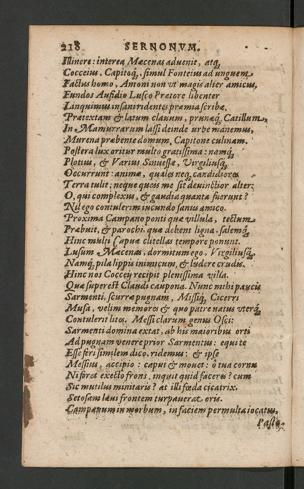 218 SERMONVM.
Illinere: interea Mæcenas aduenit, atq;
Cocceius, Capitoq́, simul Fonteius ad unguem
Factus homo, Antoni non vt magis alter amicus,
Fundos Aufidio Lusco Prætore libenter
Linquimus insani ridentes præmia scribæ,
Prætextam & latum clauum, prunæq́, Catillum.
In Mamurrarum lassi deinde vrbe manemus,
Murena præbente domum, Capitone culinam.
Postera lux oritur multo gratissima: namq́,
Plotius, & Varius Sinuessæ, Virgiliusq́,
Occurrunt: animæ, quales neq, candidiores
Terra tulit: neque queis me sit deuinctior alter.
O, qui complexus, & gaudia quanta fuerunt?
Nil ego contulerim iucundo sanus amico.
Proxima Campano ponti quæ villula, tectum
Præbuit, & parochi quæ debent ligna, salemq́,
Hinc muli Capuæ clitellas tempore ponunt.
Lusum it Mæcenas, dormitum ego, Virgiliusq́,
Namq́, pila lippis inimicum, & ludere crudis.
Hinc nos Coccei recipit plenissima villa.
Quæ superest Claudi caupona. Nunc mihi paucis
Sarmenti, scurræ pugnam, Messiiq́, Cicerri
Musa, velim memores: & quo patre natus vterq́,
Contulerit lites. Messi clarum genus Osci:
Sarmenti domina extat, ab his maioribus orti
Ad pugnam venere prior Sarmentus: equi te
Esse feri similem dico. ridemus: & ipse
Messius, accipio: caput & mouet: ô tua cornu
Ni foret execto frons, inquit quid faceres? cum
Sic mutilus minitaris? at illi fœda cicatrix.
Setosam læui frontem turpauerat oris.
Campanum in morbum, in faciem permulta iocatus,
Pasto-